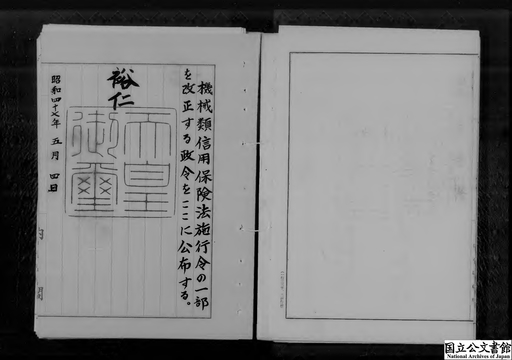 機械類信用保険法施行令の一部
を改正する政令をここに公布する。
裕仁
天皇
御璽
昭和四十七年 五月 四日
国立公文書館
National Archives of Japan